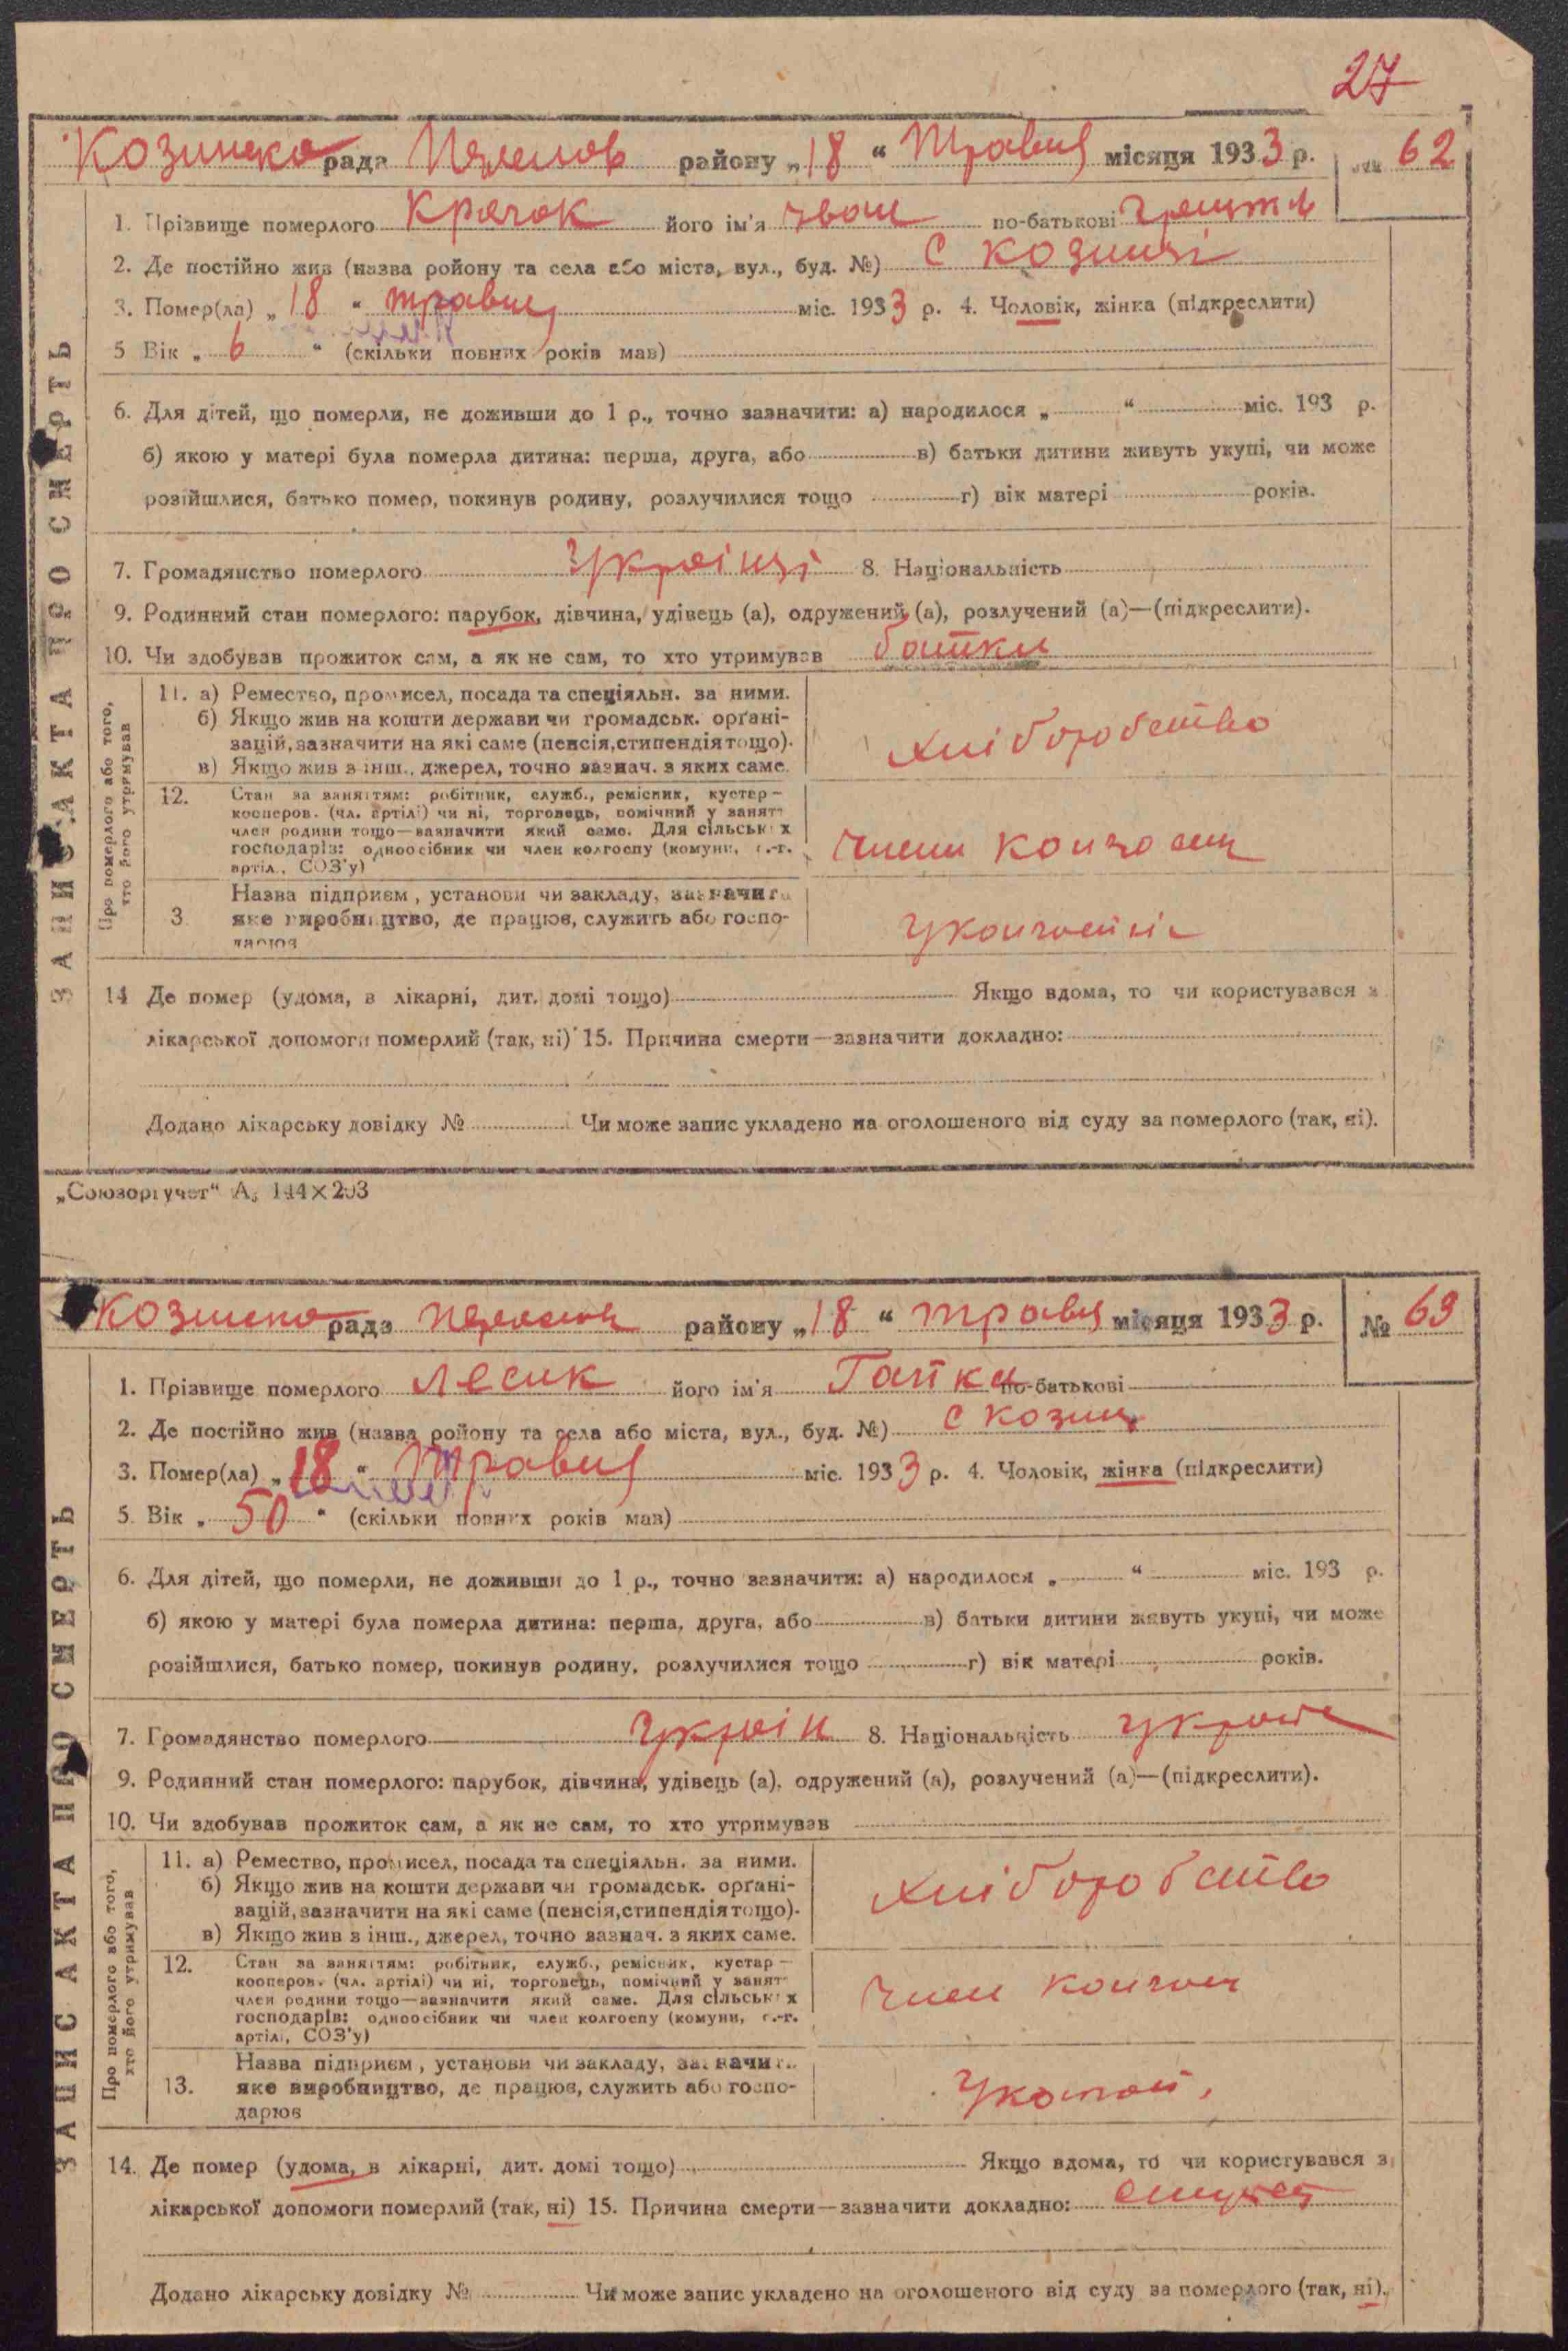 27
Козинско рада району „ 18 “ Травня місяця 1933 р. 62
1. Прізвище померлого Крячок його ім'я Іван по-батькові
2. Де постійно жив (назва ройону та села або міста, вул., буд. №) с Козинці
3. Помер(ла) „ 18 “ травня міс. 1933 р. 4. Чоловік, жінка (підкреслити)
5 Вік „ 6 “ (скільки повних років мав)
6. Для дітей, що померли, не доживши до 1 р., точно зазначити: а) народилося „ “ міс. 193 р.
б) якою у матері була померла дитина: перша, друга, або в) батьки дитини живуть укупі, чи може
розійшлися, батько помер, покинув родину, розлучилися тощо г) вік матері років.
7. Громадянство померлого Україці 8. Національність
9. Родинний стан померлого: парубок, дівчина, удівець (а), одружений (а), розлучений (а)—(підкреслити).
10. Чи здобував прожиток сам, а як не сам, то хто утримував батьки
ЗАПИС АКТА ПРО СМЕРТЬ
Про померлого або того, хто його утримував
11. а) Ремество, промисел, посада та спеціяльн. за ними.
б) Якщо жив на кошти держави чи громадськ. органі-
зацій, зазначити на які саме (пенсія, стипендія тощо).
в) Якщо жив з інш., джерел, точно зазнач. з яких саме.
хліборобство
12. Стан за заняттям: робітник, служб., ремісник, кустар—
кооперов. (чл. артілі) чи ні, торговець, помічний у занят
член родини тощо—зазначити який саме. Для сільськ х
господарів: одноосібник чи член колгоспу (комуни, с.-г.
артіл., СОЗ'у)
член колгосп
3 Назва підприєм, установи чи закладу, зазначити
яке виробництво, де працює, служить або госпо-
дарює
14 Де помер (удома, в лікарні, дит. домі тощо) Якщо вдома, то чи користувався з
лікарської допомоги померлий (так, ні) 15. Причина смерти—зазначити докладно:
Додано лікарську довідку № Чи може запис укладено на оголошеного від суду за померлого (так, ні).
„Союзоргучет“ А5 144×203
Козинско рада району „ 18 “ травня місяця 1933 р. № 63
1. Прізвище померлого Лесик його ім'я Гапка по-батькові
2. Де постійно жив (назва ройону та села або міста, вул., буд. №) с Козинц
3. Помер(ла) „ 18 “ Травня міс. 1933 р. 4. Чоловік, жінка (підкреслити)
5. Вік „ 50 “ (скільки повних років мав)
6. Для дітей, що померли, не доживши до 1 р., точно зазначити: а) народилося „ “ міс. 193 р.
б) якою у матері була померла дитина: перша, друга, або в) батьки дитини живуть укупі, чи може
розійшлися, батько помер, покинув родину, розлучилися тощо г) вік матері років.
7. Громадянство померлого Україн 8. Національність
9. Родинний стан померлого: парубок, дівчина, удівець (а), одружений (а), розлучений (а)—(підкреслити).
10. Чи здобував прожиток сам, а як не сам, то хто утримував
ЗАПИС АКТА ПРО СМЕРТЬ
Про померлого або того, хто його утримував
11. а) Ремество, промисел, посада та спеціяльн. за ними.
б) Якщо жив на кошти держави чи громадськ. органі-
зацій, зазначити на які саме (пенсія, стипендія тощо).
в) Якщо жив з інш., джерел, точно зазнач. з яких саме.
хліборобство
12. Стан за заняттям: робітник, служб., ремісник, кустар—
кооперов. (чл. артілі) чи ні, торговець, помічний у занят
член родини тощо—зазначити який саме. Для сільськ х
господарів: одноосібник чи член колгоспу (комуни, с.-г.
артілі, СОЗ'у)
член
13. Назва підприєм, установи чи закладу, зазначити
яке виробництво, де працює, служить або госпо-
дарює
14. Де помер (удома, в лікарні, дит. домі тощо) Якщо вдома, то чи користувався з
лікарської допомоги померлий (так, ні) 15. Причина смерти—зазначити докладно:
Додано лікарську довідку № Чи може запис укладено на оголошеного від суду за померлого (так, ні).